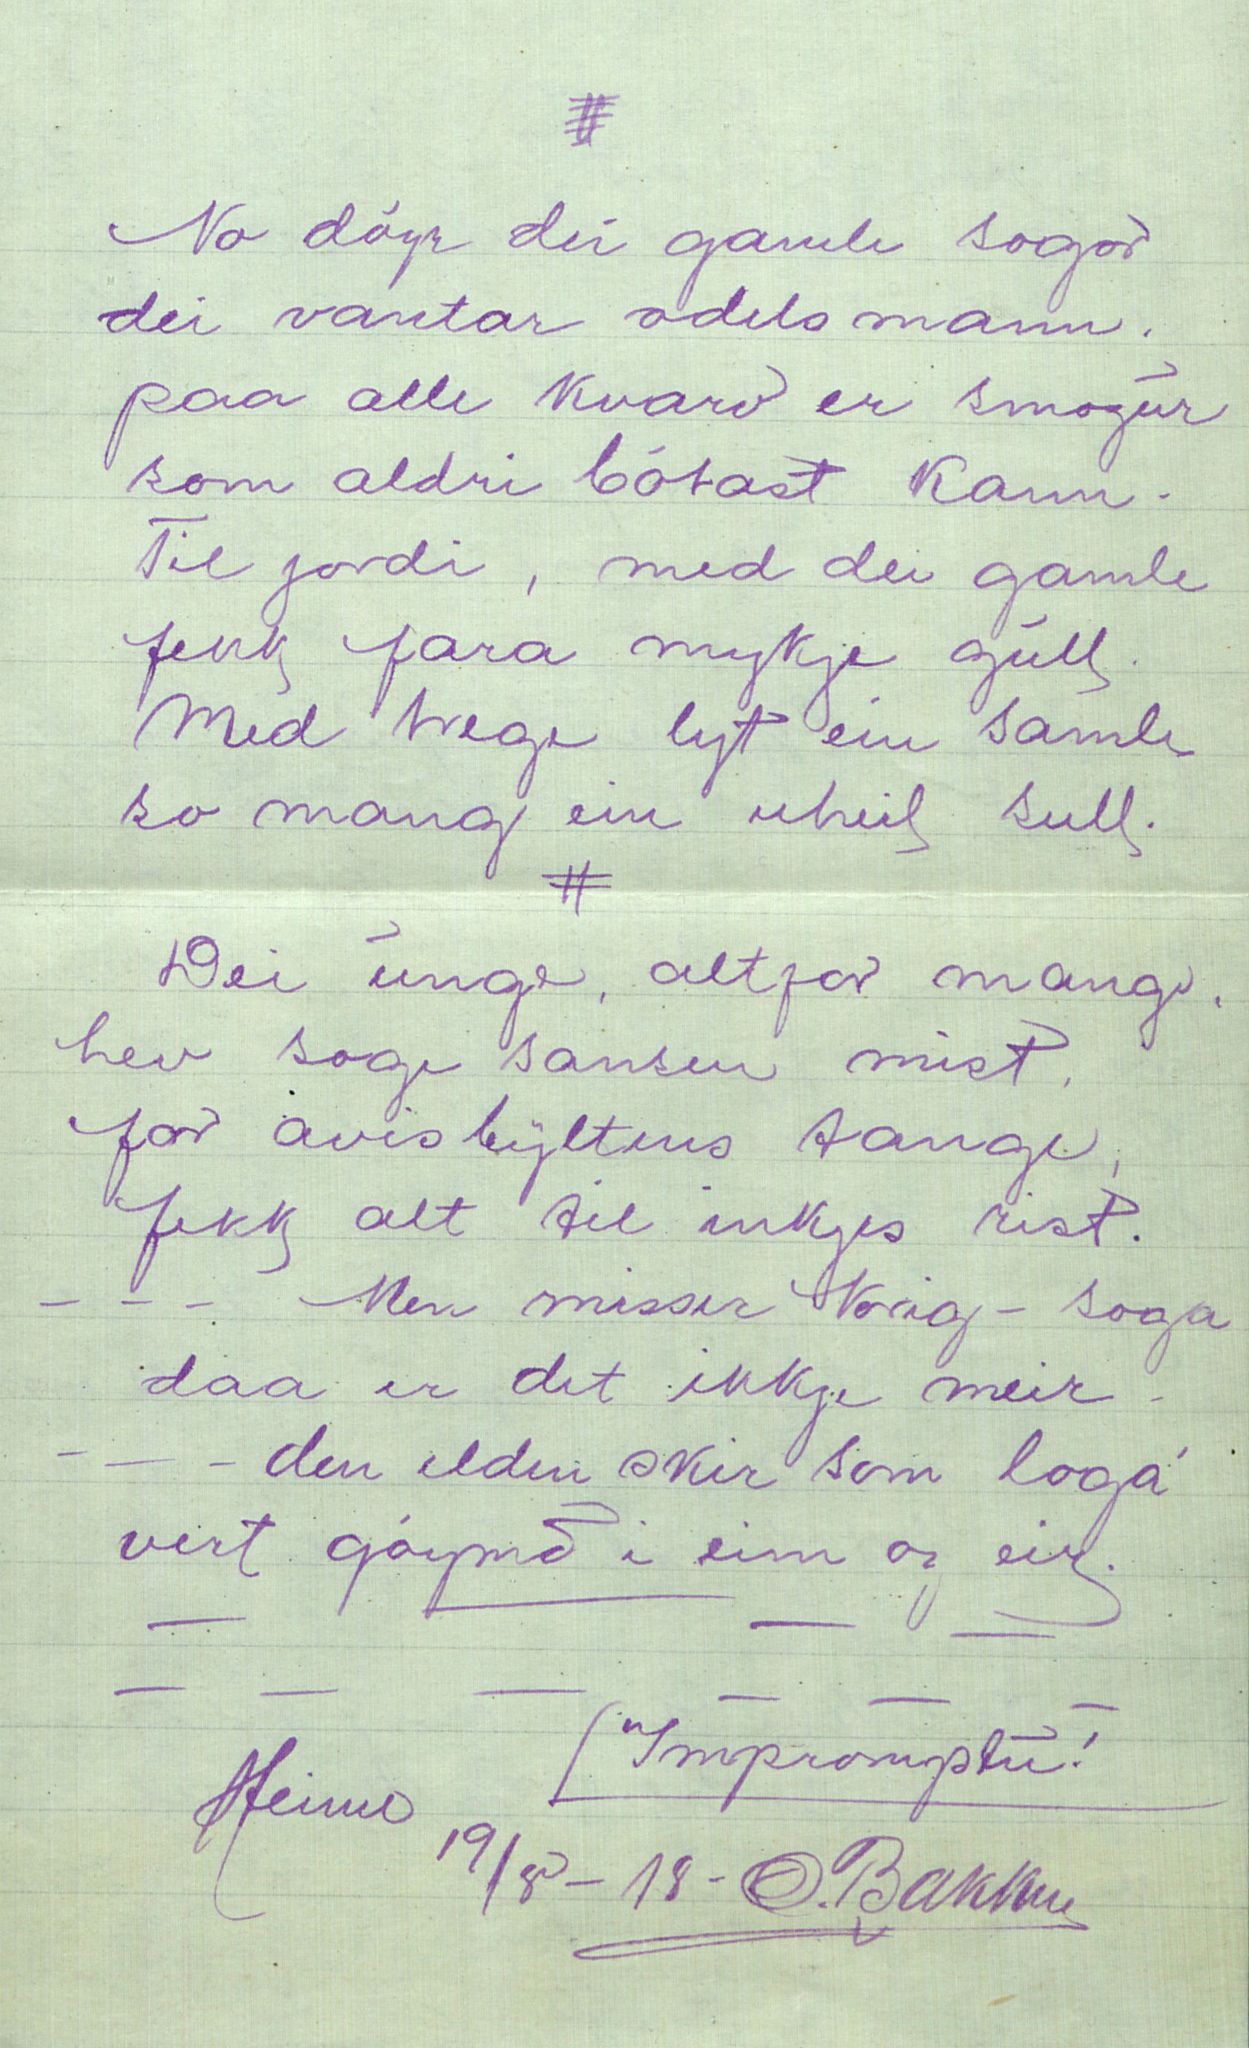 #
No döyr dei gamle sogor
dei vantar odelsmann.
paa alle kvarv er smogur
som aldri bótast kann.
Til jordi, med dei gamle
fekk fara mykje gull.
Med trege lyt ein samle
so mang ein uheil sull.
#
Dei unge, altfor mange,
hev sogesansen mist,
for avisbyltens tange,
fekk alt til inkjes rist.
- - - Men misser Norig-soga
daa er det ikkje meir -
- - - den elden skir som loga
vert góymd i eim og eir.
"Impromptu!
Heimo
19/8-18- O. Bakken